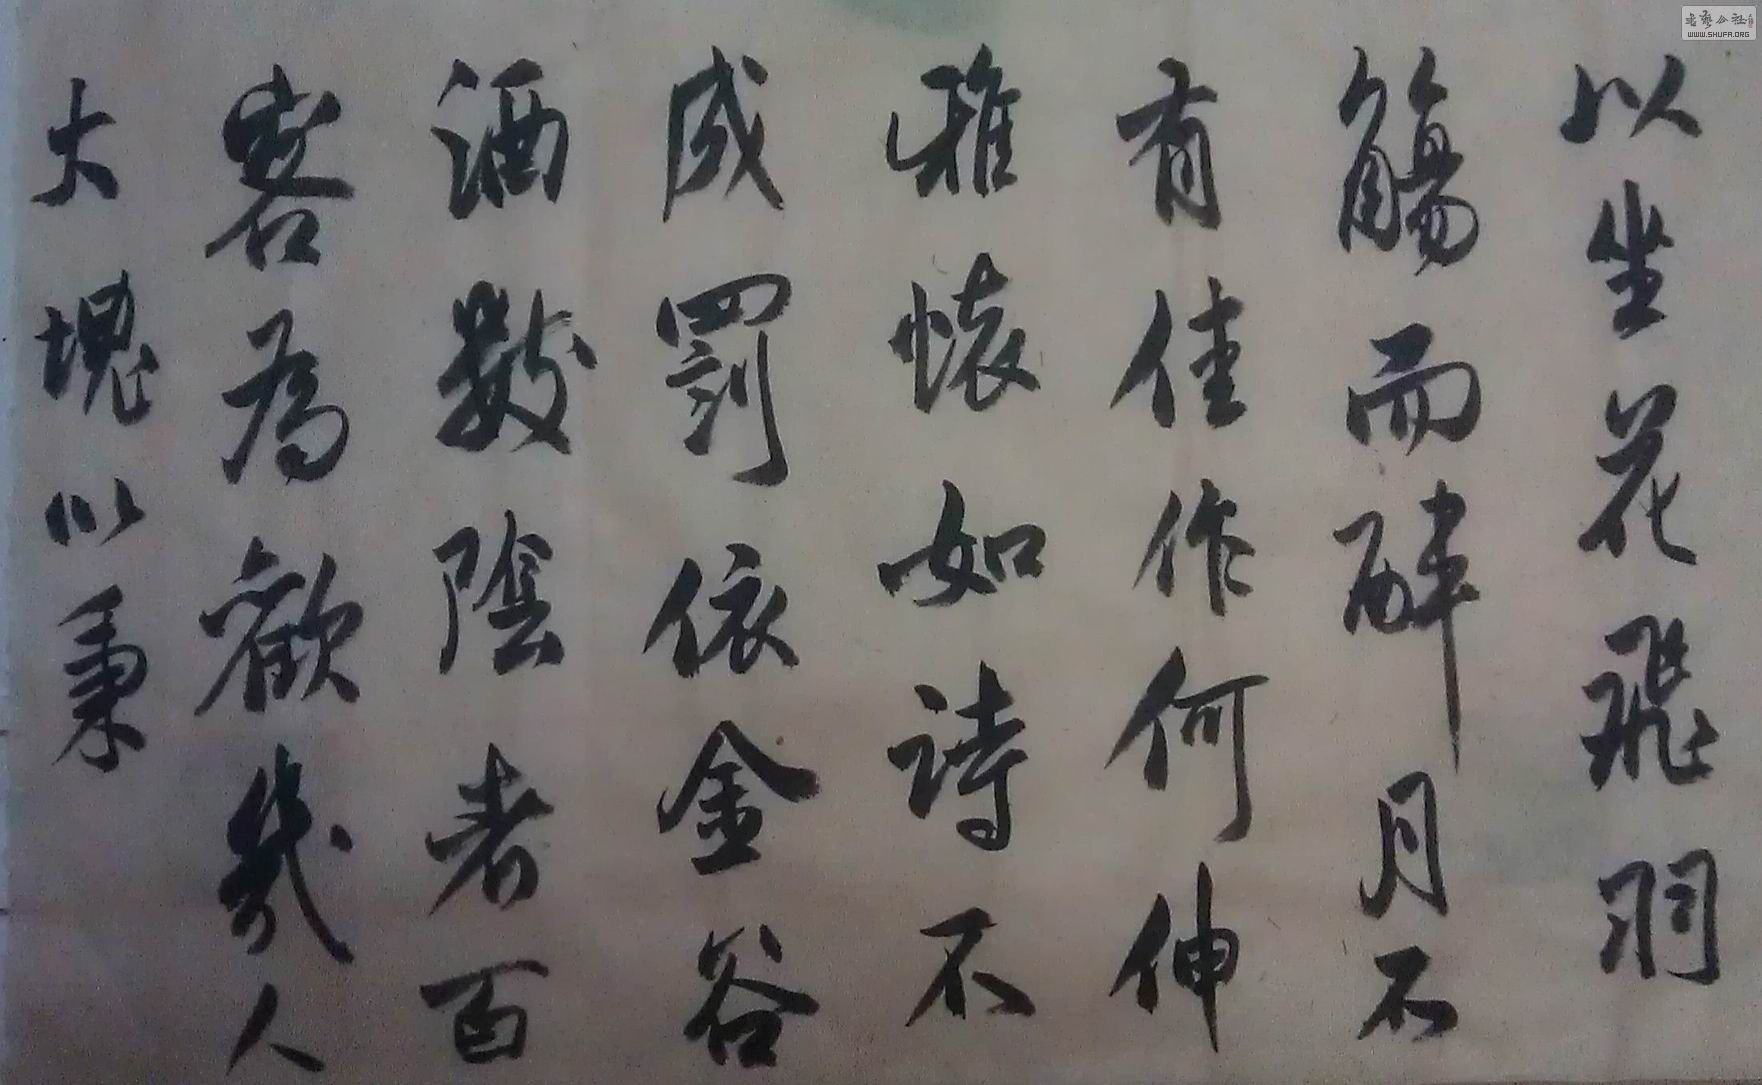 以坐花飛羽
觴而醉月不
有佳作何伸
雅懷如詩不
成罰依金谷
酒數陰者百
客為歡幾人
大塊以秉
WWW.SHUFA.ORG